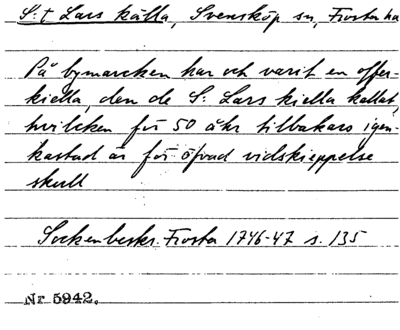 S:t Lars källa, Svensköp sn, Frosta ha
På bymarcken har och varit en offer-
kiella, den de S: Lars kiella kallat,
hvilcken för 50 åhr tilbakars igen-
kastad är för öfvad vidskieppelse
skull
Sockenbeskr. Frosta 1746-47 s. 135
Nr 5942.